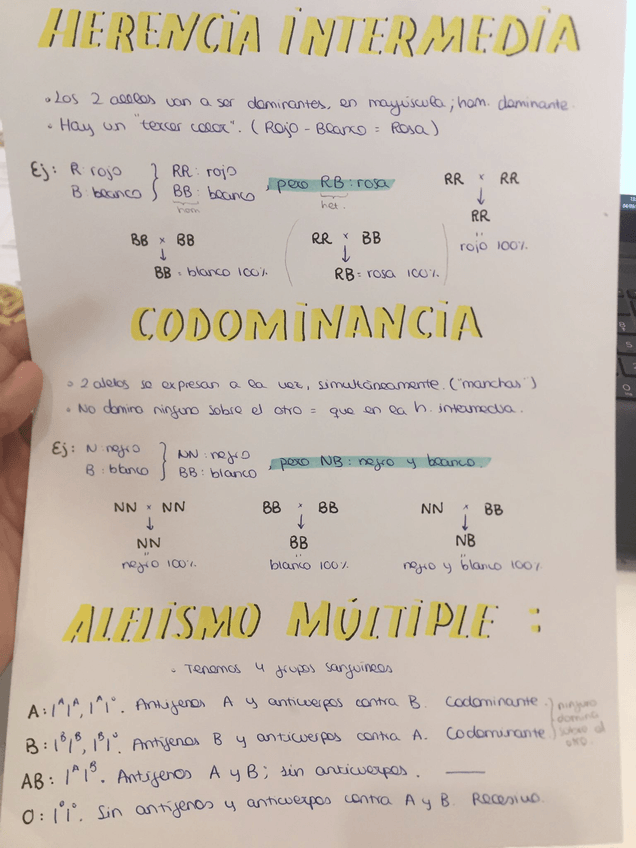 HERENCIA INTERMEDIA
· Los 2 alelos van a ser dominantes, en mayúscula; hom. dominante.
· Hay un "tercer color". (Rojo - Blanco = Rosa)
Ej: R: rojo } RR: rojo, pero RB: rosa
B: blanco } BB: blanco
hom
het.
RR × RR
↓
RR
rojo 100%
BB × BB
↓
BB = blanco 100%
RR × BB
↓
RB = rosa 100%
CODOMINANCIA
· 2 alelos se expresan a la vez, simultáneamente. ("manchas")
· No domina ninguno sobre el otro = que en la h. intermedia.
Ej: N: negro } NN: negro, pero NB: negro y blanco.
B: blanco } BB: blanco
NN × NN
↓
NN
negro 100%
BB × BB
↓
BB
blanco 100%
NN × BB
↓
NB
negro y blanco 100%
ALELISMO MÚLTIPLE:
· Tenemos 4 grupos sanguíneos
A: IᴬIᴬ, IᴬI⁰. Antígenos A y anticuerpos contra B. Codominante.
B: IᴮIᴮ, IᴮI⁰. Antígenos B y anticuerpos contra A. Codominante
} ninguno
domina
sobre el
otro.
AB: IᴬIᴮ. Antígenos A y B; sin anticuerpos. —
O: I⁰I⁰. Sin antígenos y anticuerpos contra A y B. Recesivo.